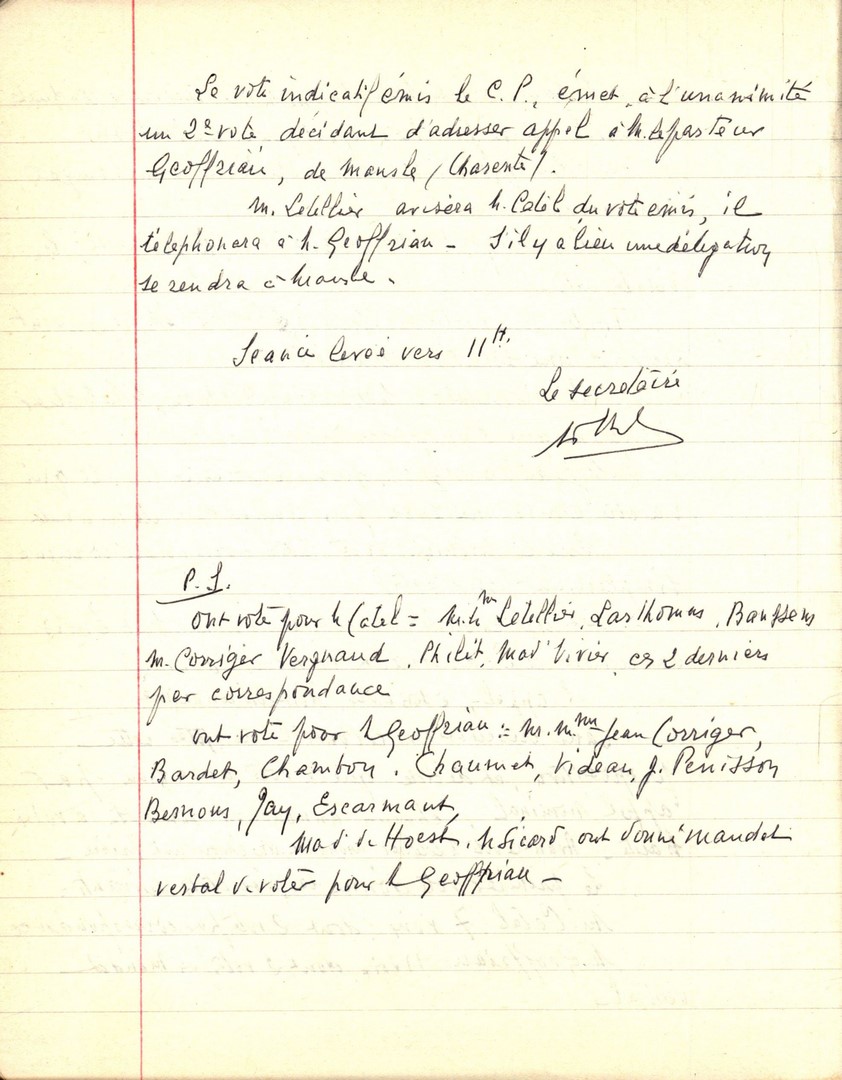 Le vote indicatif émis le C.P., émet, à l'unanimité
un 2e vote décidant d'adresser appel à M. le pasteur
Geoffriau, de Mansle (Charente).
M. Letellier avisera M. Catel du vote émis, il
téléphonera à M. Geoffriau - S'il y a lieu une délégation
se rendra à Mansle.
Séance levée vers 11H.
Le secrétaire
P.S.
ont voté pour M Catel = M.M Letellier, Las Thomas,
M. Corriger Vergnaud, Philit, Mad' Vivier, ces 2 derniers
par correspondance
ont voté pour M Geoffriau = M.M. Jean Corriger,
Bardet, Chambon, Chaumet, Videau, J. Penisson
Bernous, Jay, Escarmant,
Mad' de Hoest, M Sicard ont donné mandat
verbal de voter pour M Geoffriau -